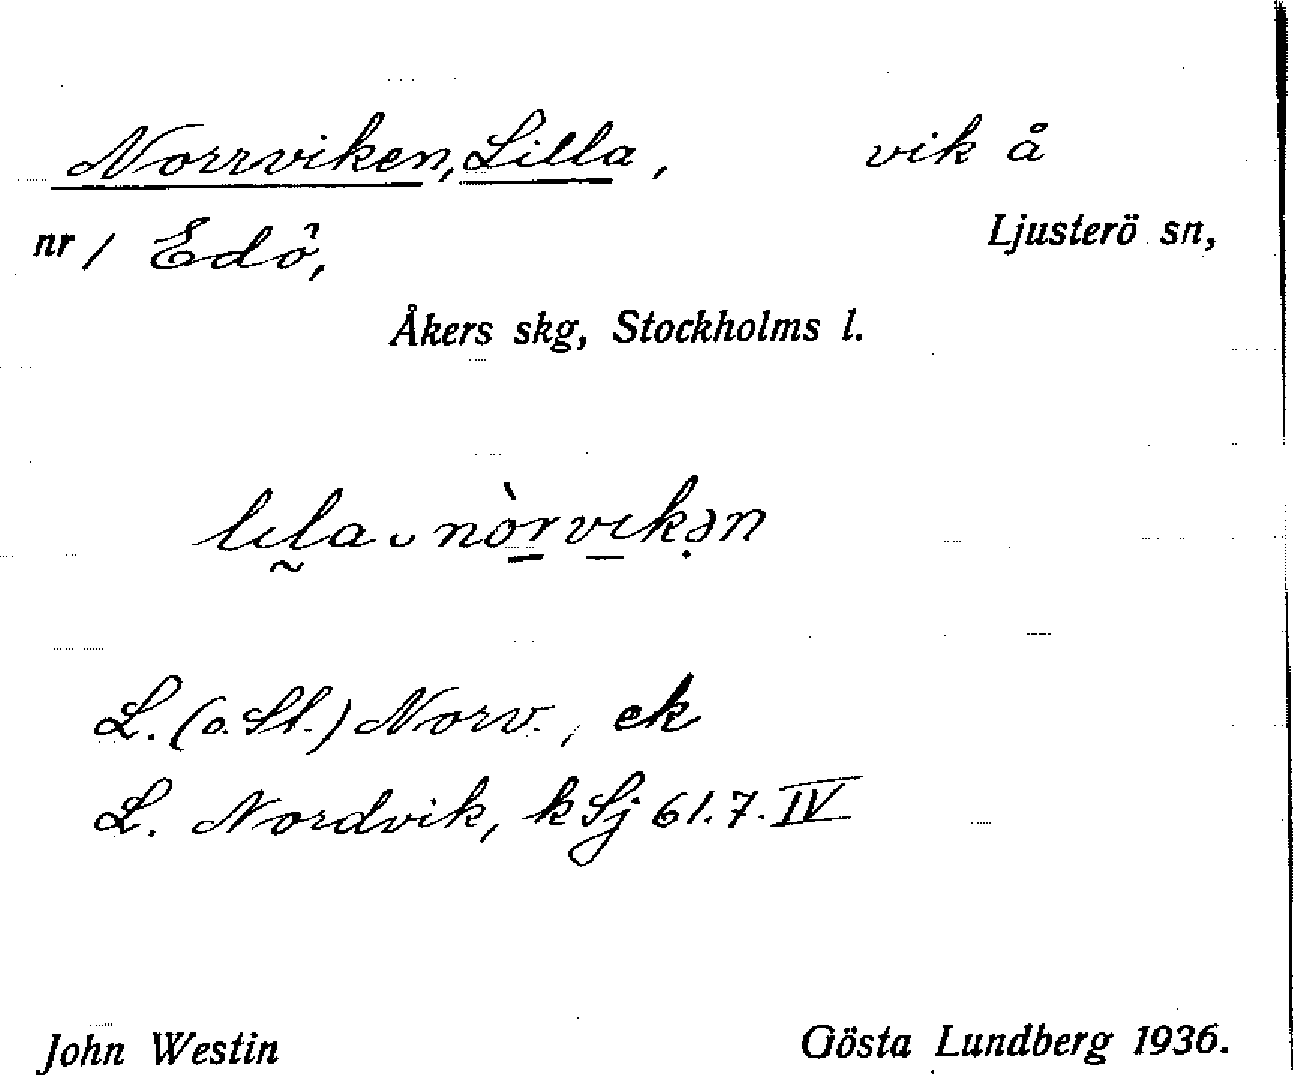 Norrviken, Lilla, vik å
nr 1 Edö, Ljusterö sn,
Åkers skg, Stockholms l.
lɩla ᴗ nòrvɩkən
L. (o. St.) Norv., ek
L. Nordvik, k Sj 61.7.IV
John Westin Gösta Lundberg 1936.